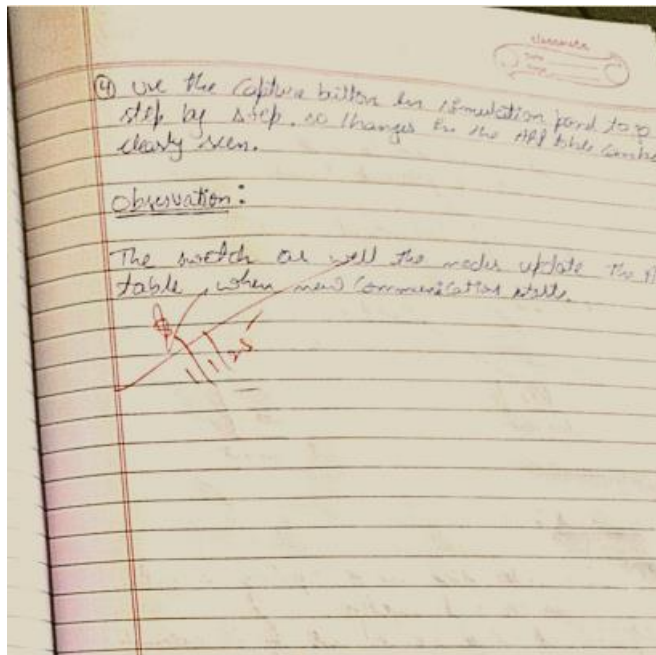 classmate
④ Use the Capture button in simulation panel to go
step by step. so changes in the ARP table can be
clearly seen.
Observation:
The switch as well the nodes update the
table, when new communication starts.